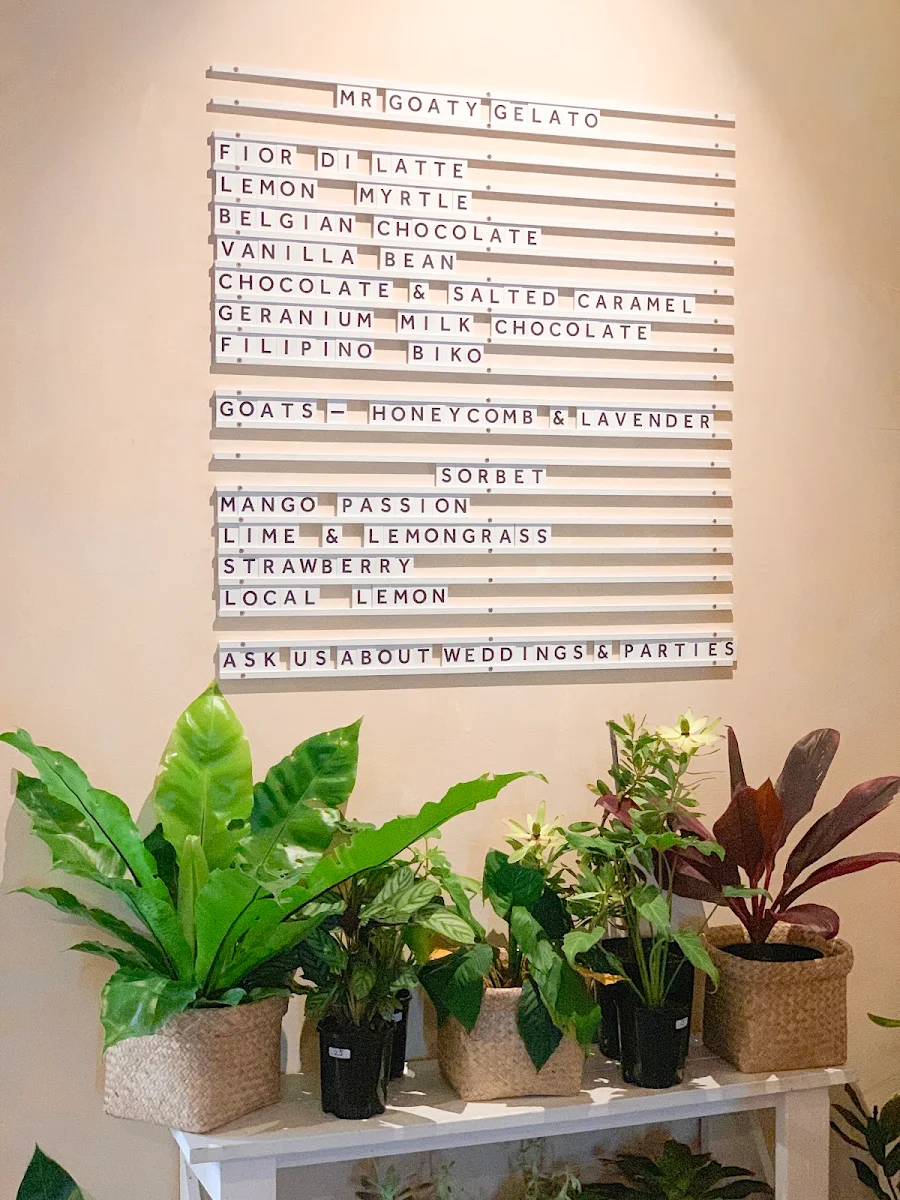 MR GOATY GELATO
FIOR DI LATTE
LEMON MYRTLE
BELGIAN CHOCOLATE
VANILLA BEAN
CHOCOLATE & SALTED CARAMEL
GERANIUM MILK CHOCOLATE
FILIPINO BIKO
GOATS — HONEYCOMB & LAVENDER
SORBET
MANGO PASSION
LIME & LEMONGRASS
STRAWBERRY
LOCAL LEMON
ASK US ABOUT WEDDINGS & PARTIES